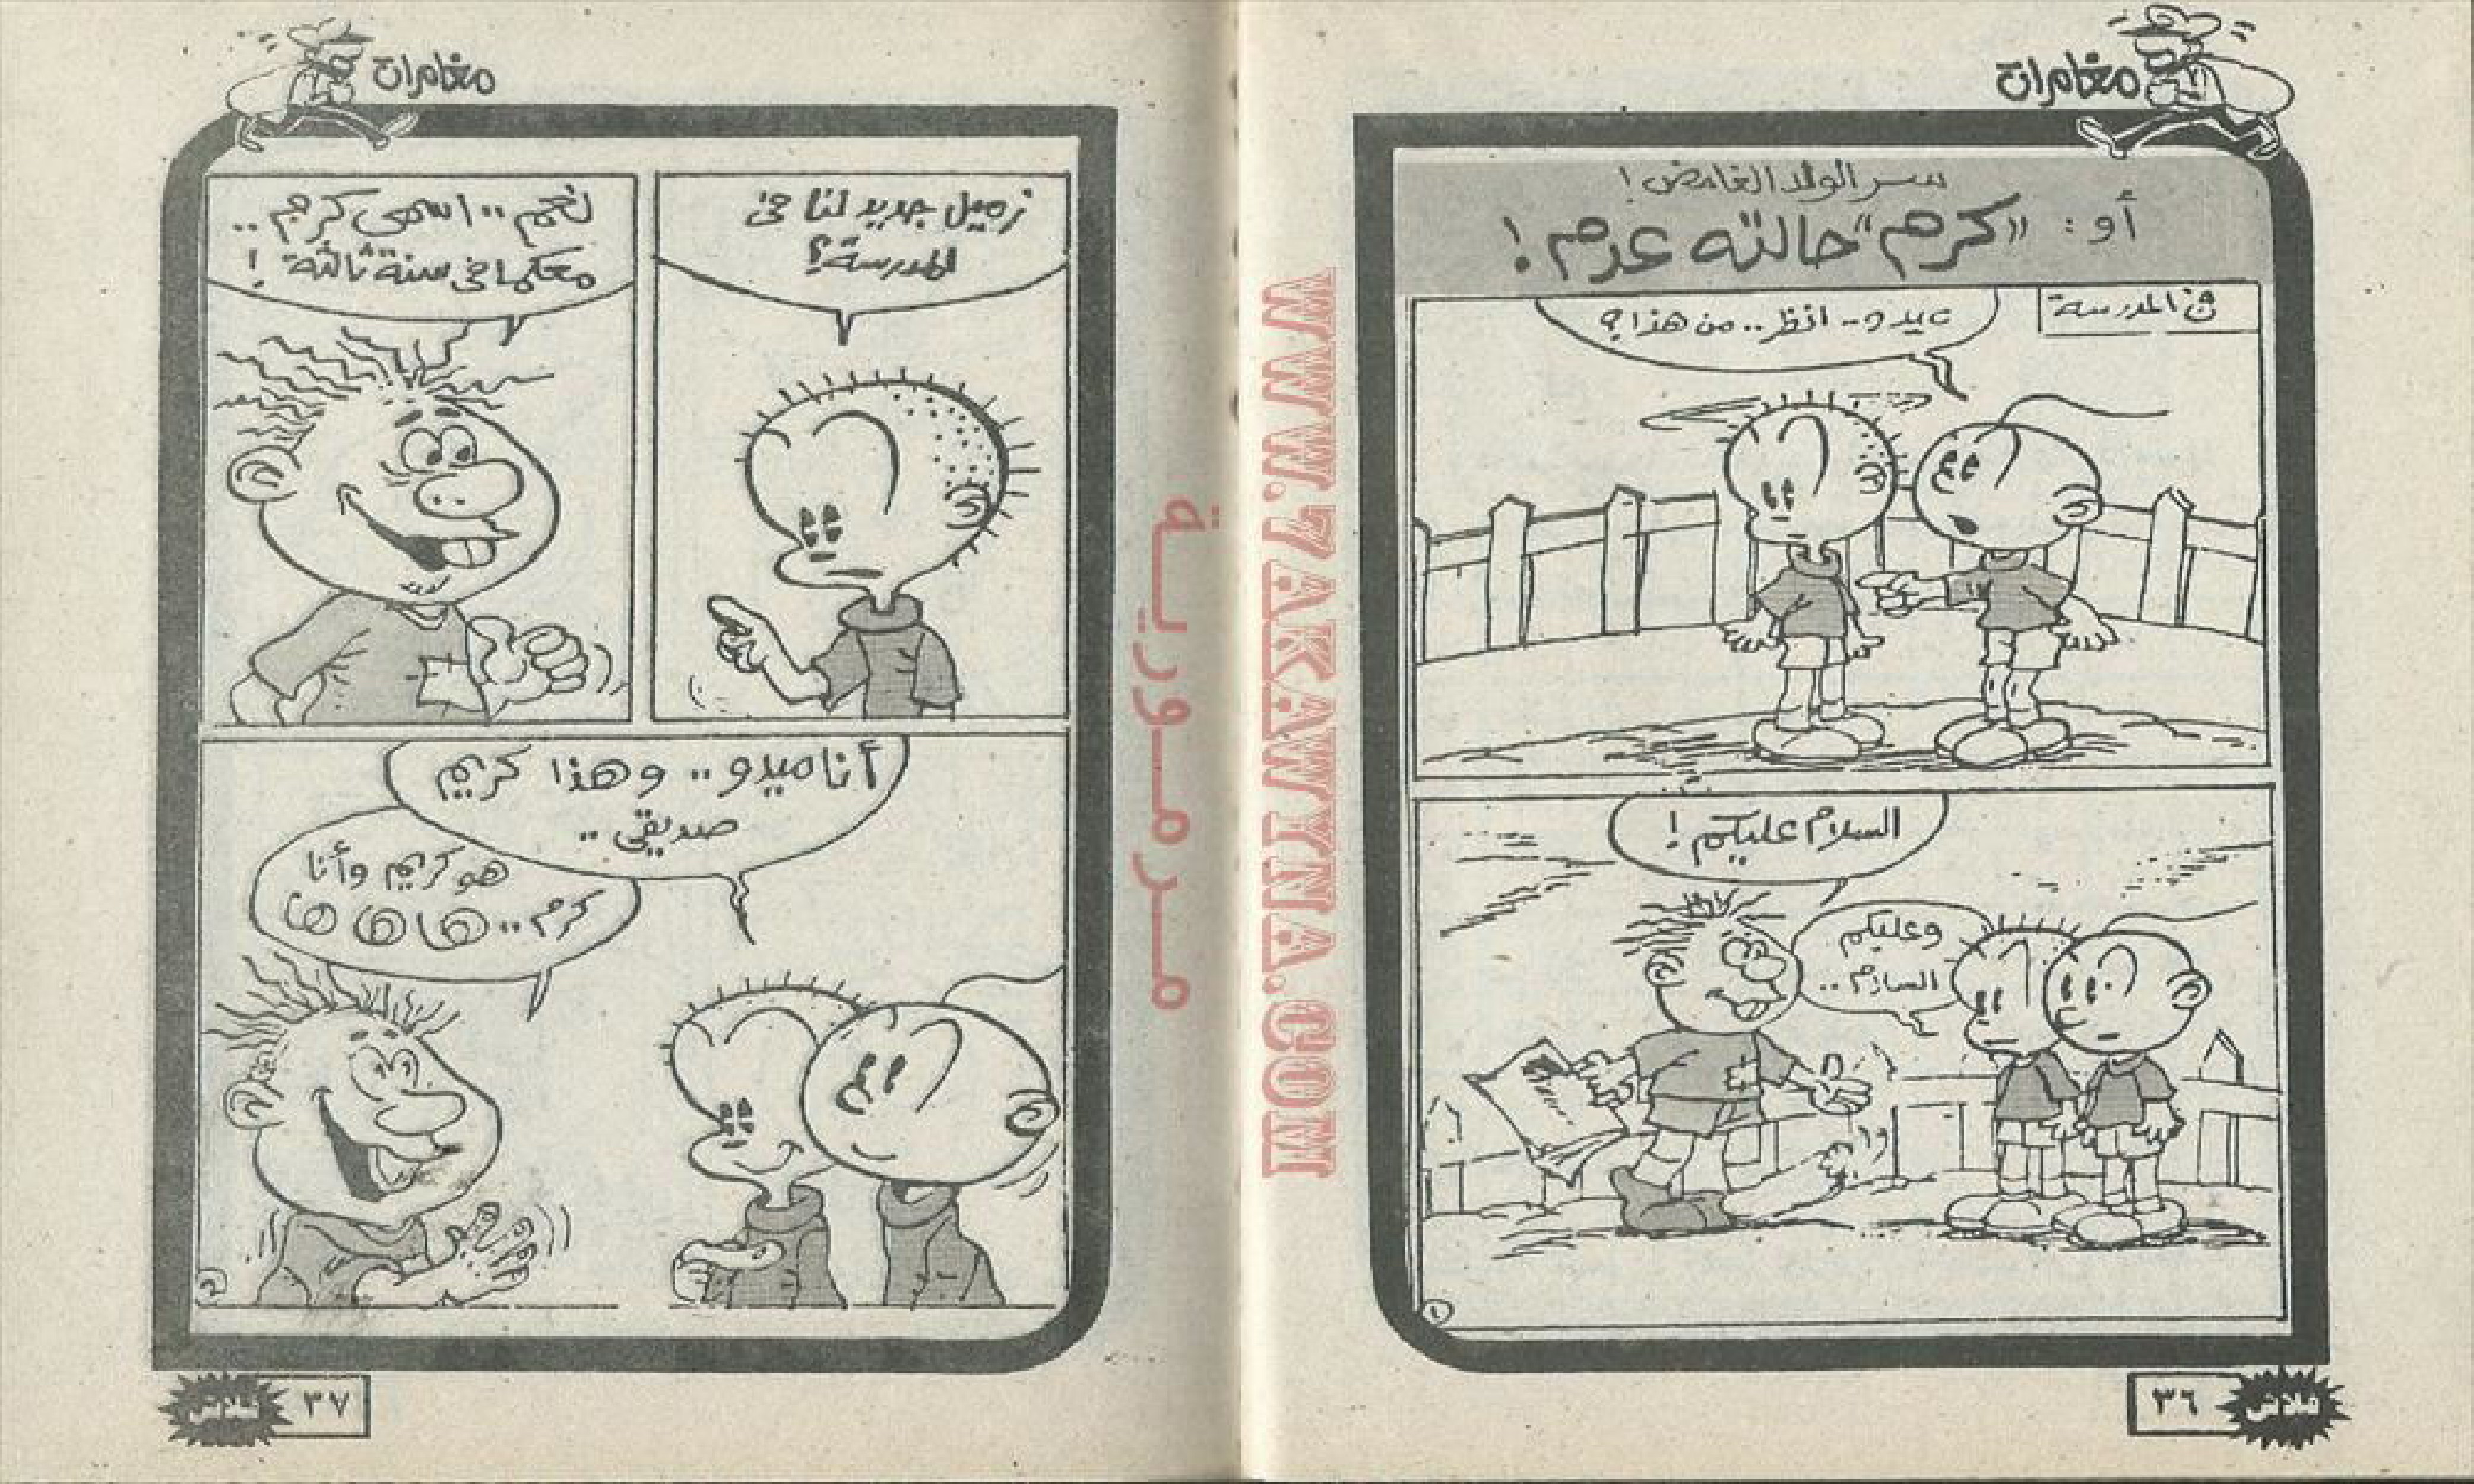 مغامرات
سر الولد الغامض!
أو: "كرم" حالته عدم!
في المدرسة
ميدو.. انظر.. من هذا؟
السلام عليكم!
وعليكم
السلام..
١
٣٦
فلاش
مغامرات
زميل جديد لنا في
المدرسة؟
نعم.. اسمى كرم..
معكما في سنة ثالثة!
أنا ميدو.. وهذا كريم
صديقي..
هو كريم وأنا
كرم.. ها ها ها
٢
٣٧
فلاش
مرمورية
WWW.7AKAWINA.COM